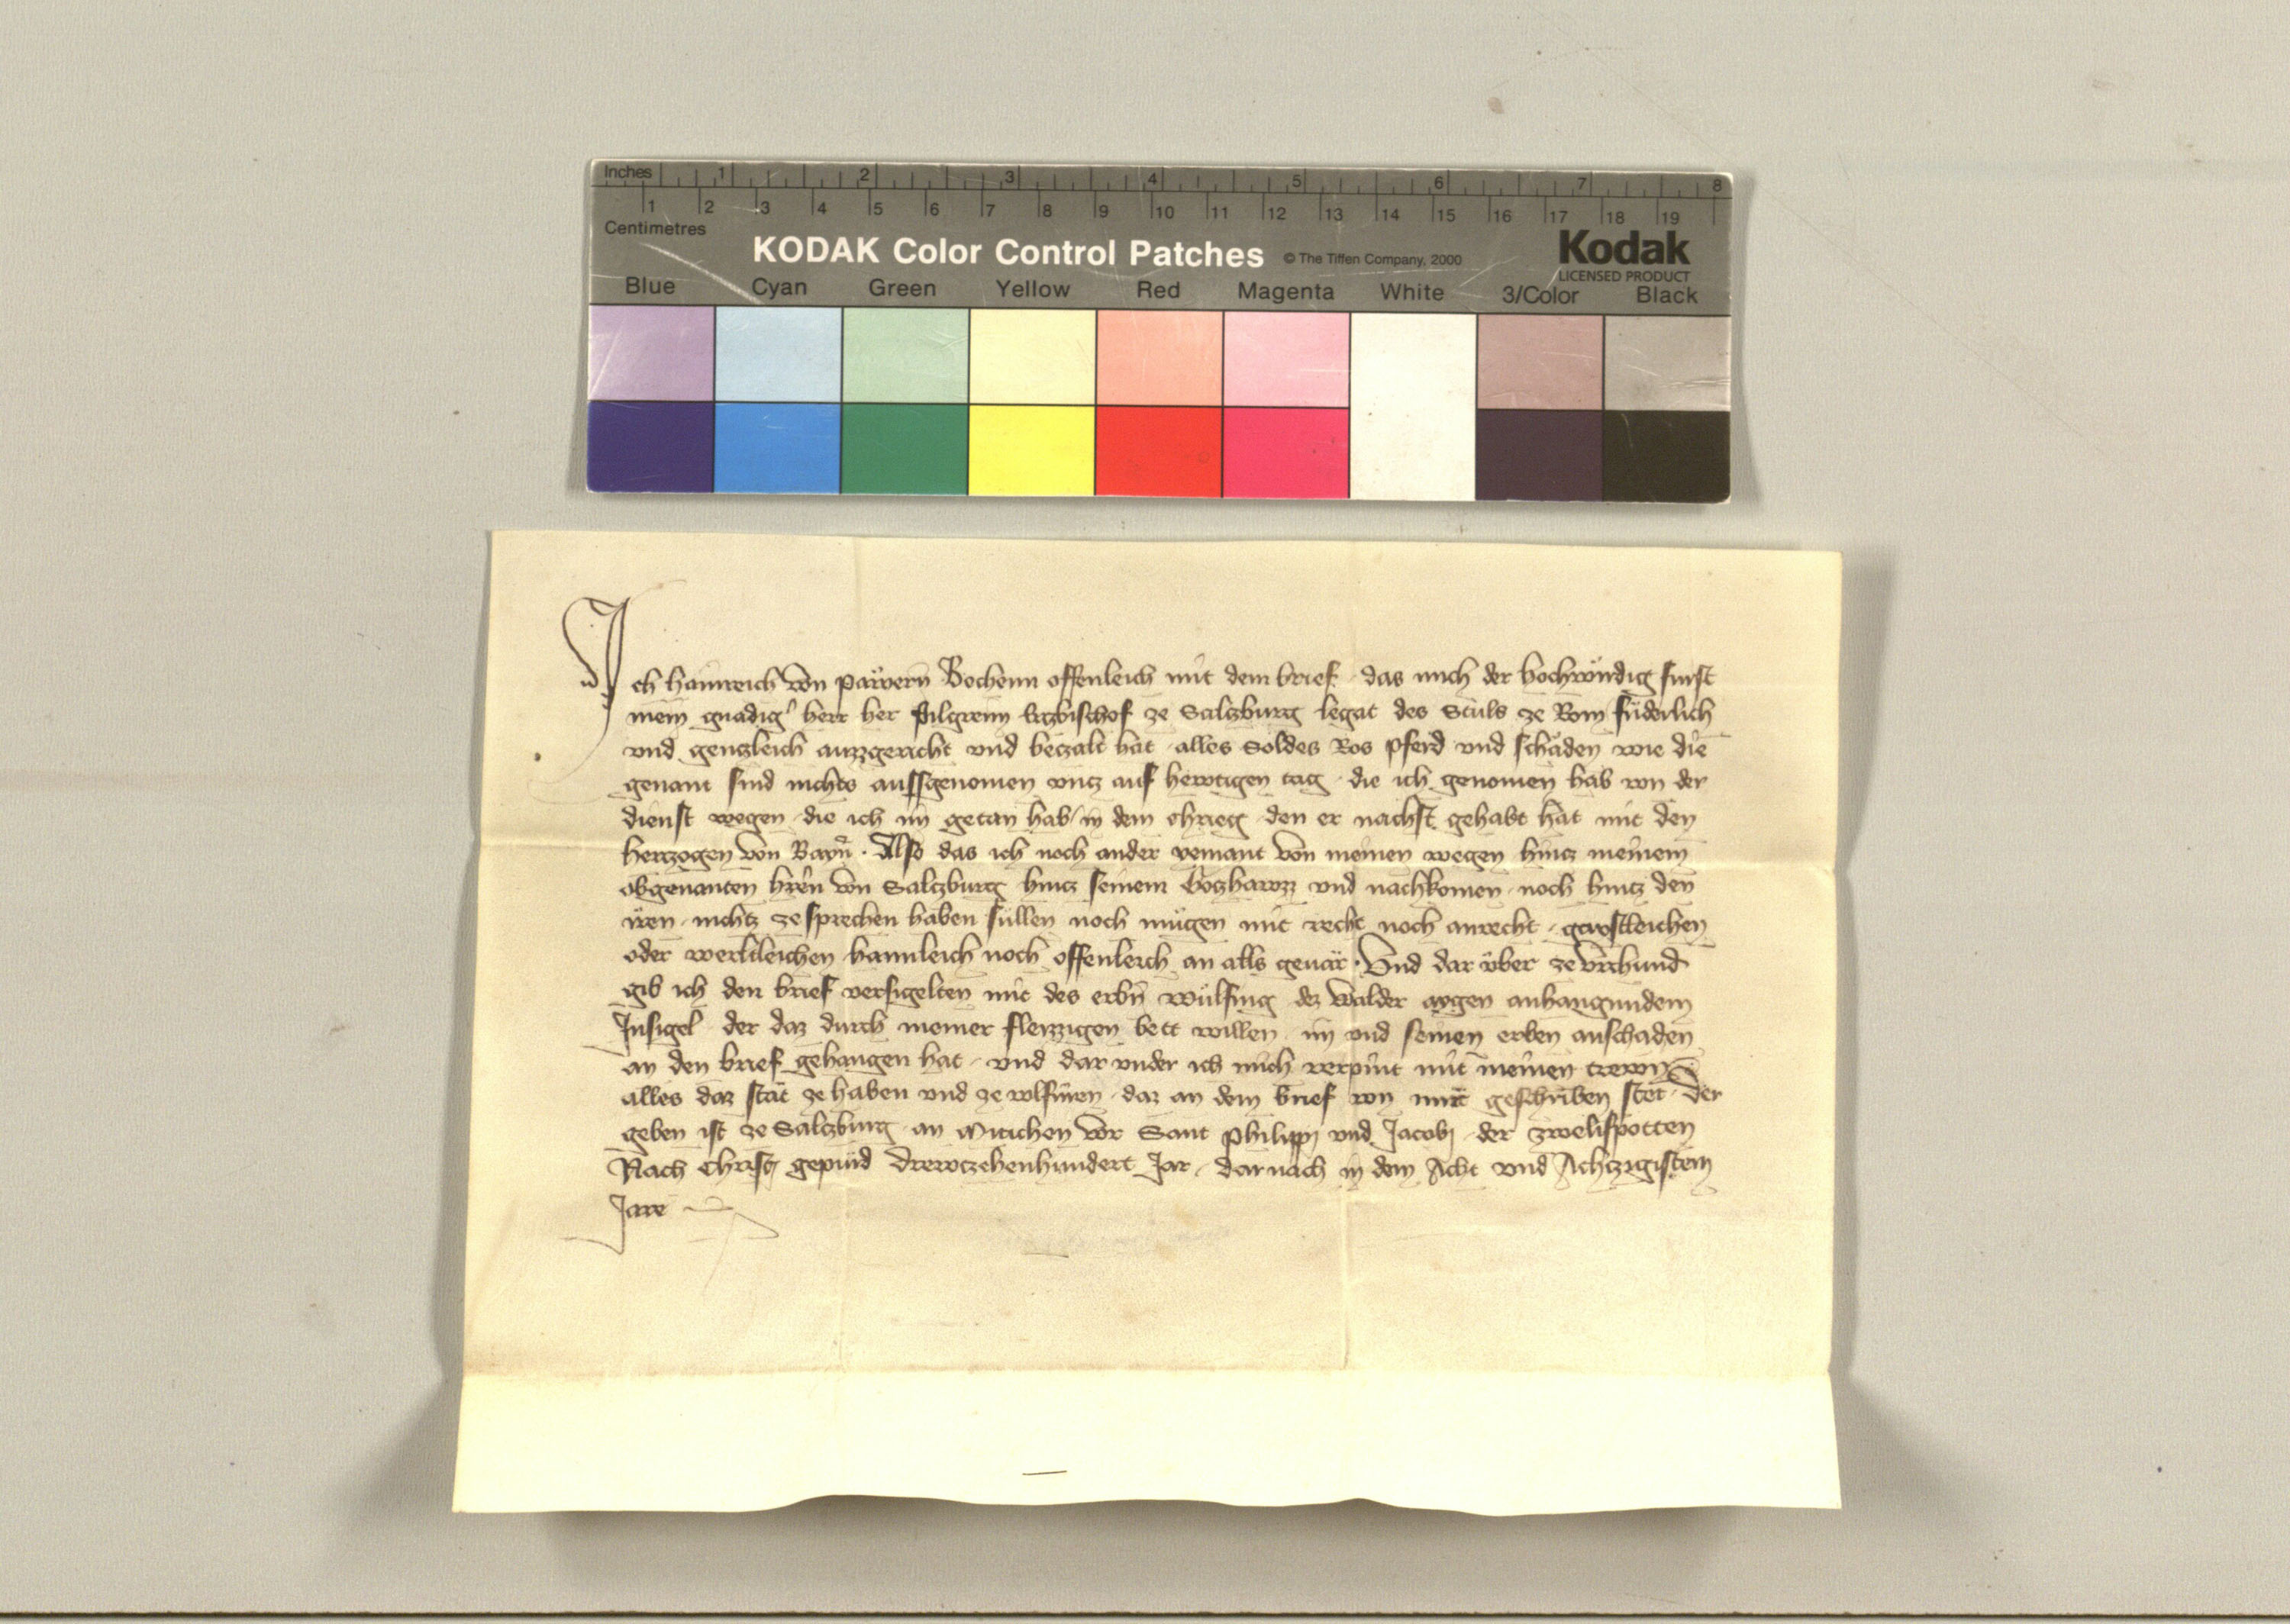 Inches 1 2 3 4 5 6 7 8
1 2 3 4 5 6 7 8 9 10 11 12 13 14 15 16 17 18 19
Centimetres
KODAK Color Control Patches © The Tiffen Company, 2000 Kodak
LICENSED PRODUCT
Blue Cyan Green Yellow Red Magenta White 3/Color Black
Ich hainreich von Bechenn offenleich mit dem brief das mich der hochwirdig furst
mein gnadig' herr her Pilgreim Erzbischof ze Salzburg legat des Stuls ze Rom füderlich
vnd genczleich auzzgericht vnd beczalt hat alles Soldes Ros pferd vnd schäden wie die
genant sind nichts aussgenomen vncz auf hewtigen tag die ich genomen hab von der
dienst wegen die ich im getan hab in dem chrieg den er nachst gehabt hat mit den
herczogen von Bayrn . Also das ich noch ander yemant von meinen wegen hincz meinem
obgenanten hren von Salczburg hincz seinem Gotzhawzz vnd nachkomen noch hincz den
iren nichtz ze sprechen haben süllen noch mügen mit recht noch anrecht gaistleichen
oder werltleichen haimleich noch offenleich an alls geuär . Vnd dar über ze vrchund
gib ich den brief versigelten mit des erbn wülfing dez walder aygen anhangundem
Insigel der daz durch meiner fleizzigen bett willen im vnd seinen erben anschaden
an den brief gehangen hat vnd dar vnder ich mich verpint mit meinen trewn
alles daz stät ze haben vnd ze volfüren daz an dem brief von mir geschriben stet . Der
geben ist ze Salczburg an Mitichen vor Sant Philippi vnd Jacobi der zwelifpotten
Nach Christi gepurd Drewczehenhundert Jar darnach in dem Acht vnd Achczigistem
Jare